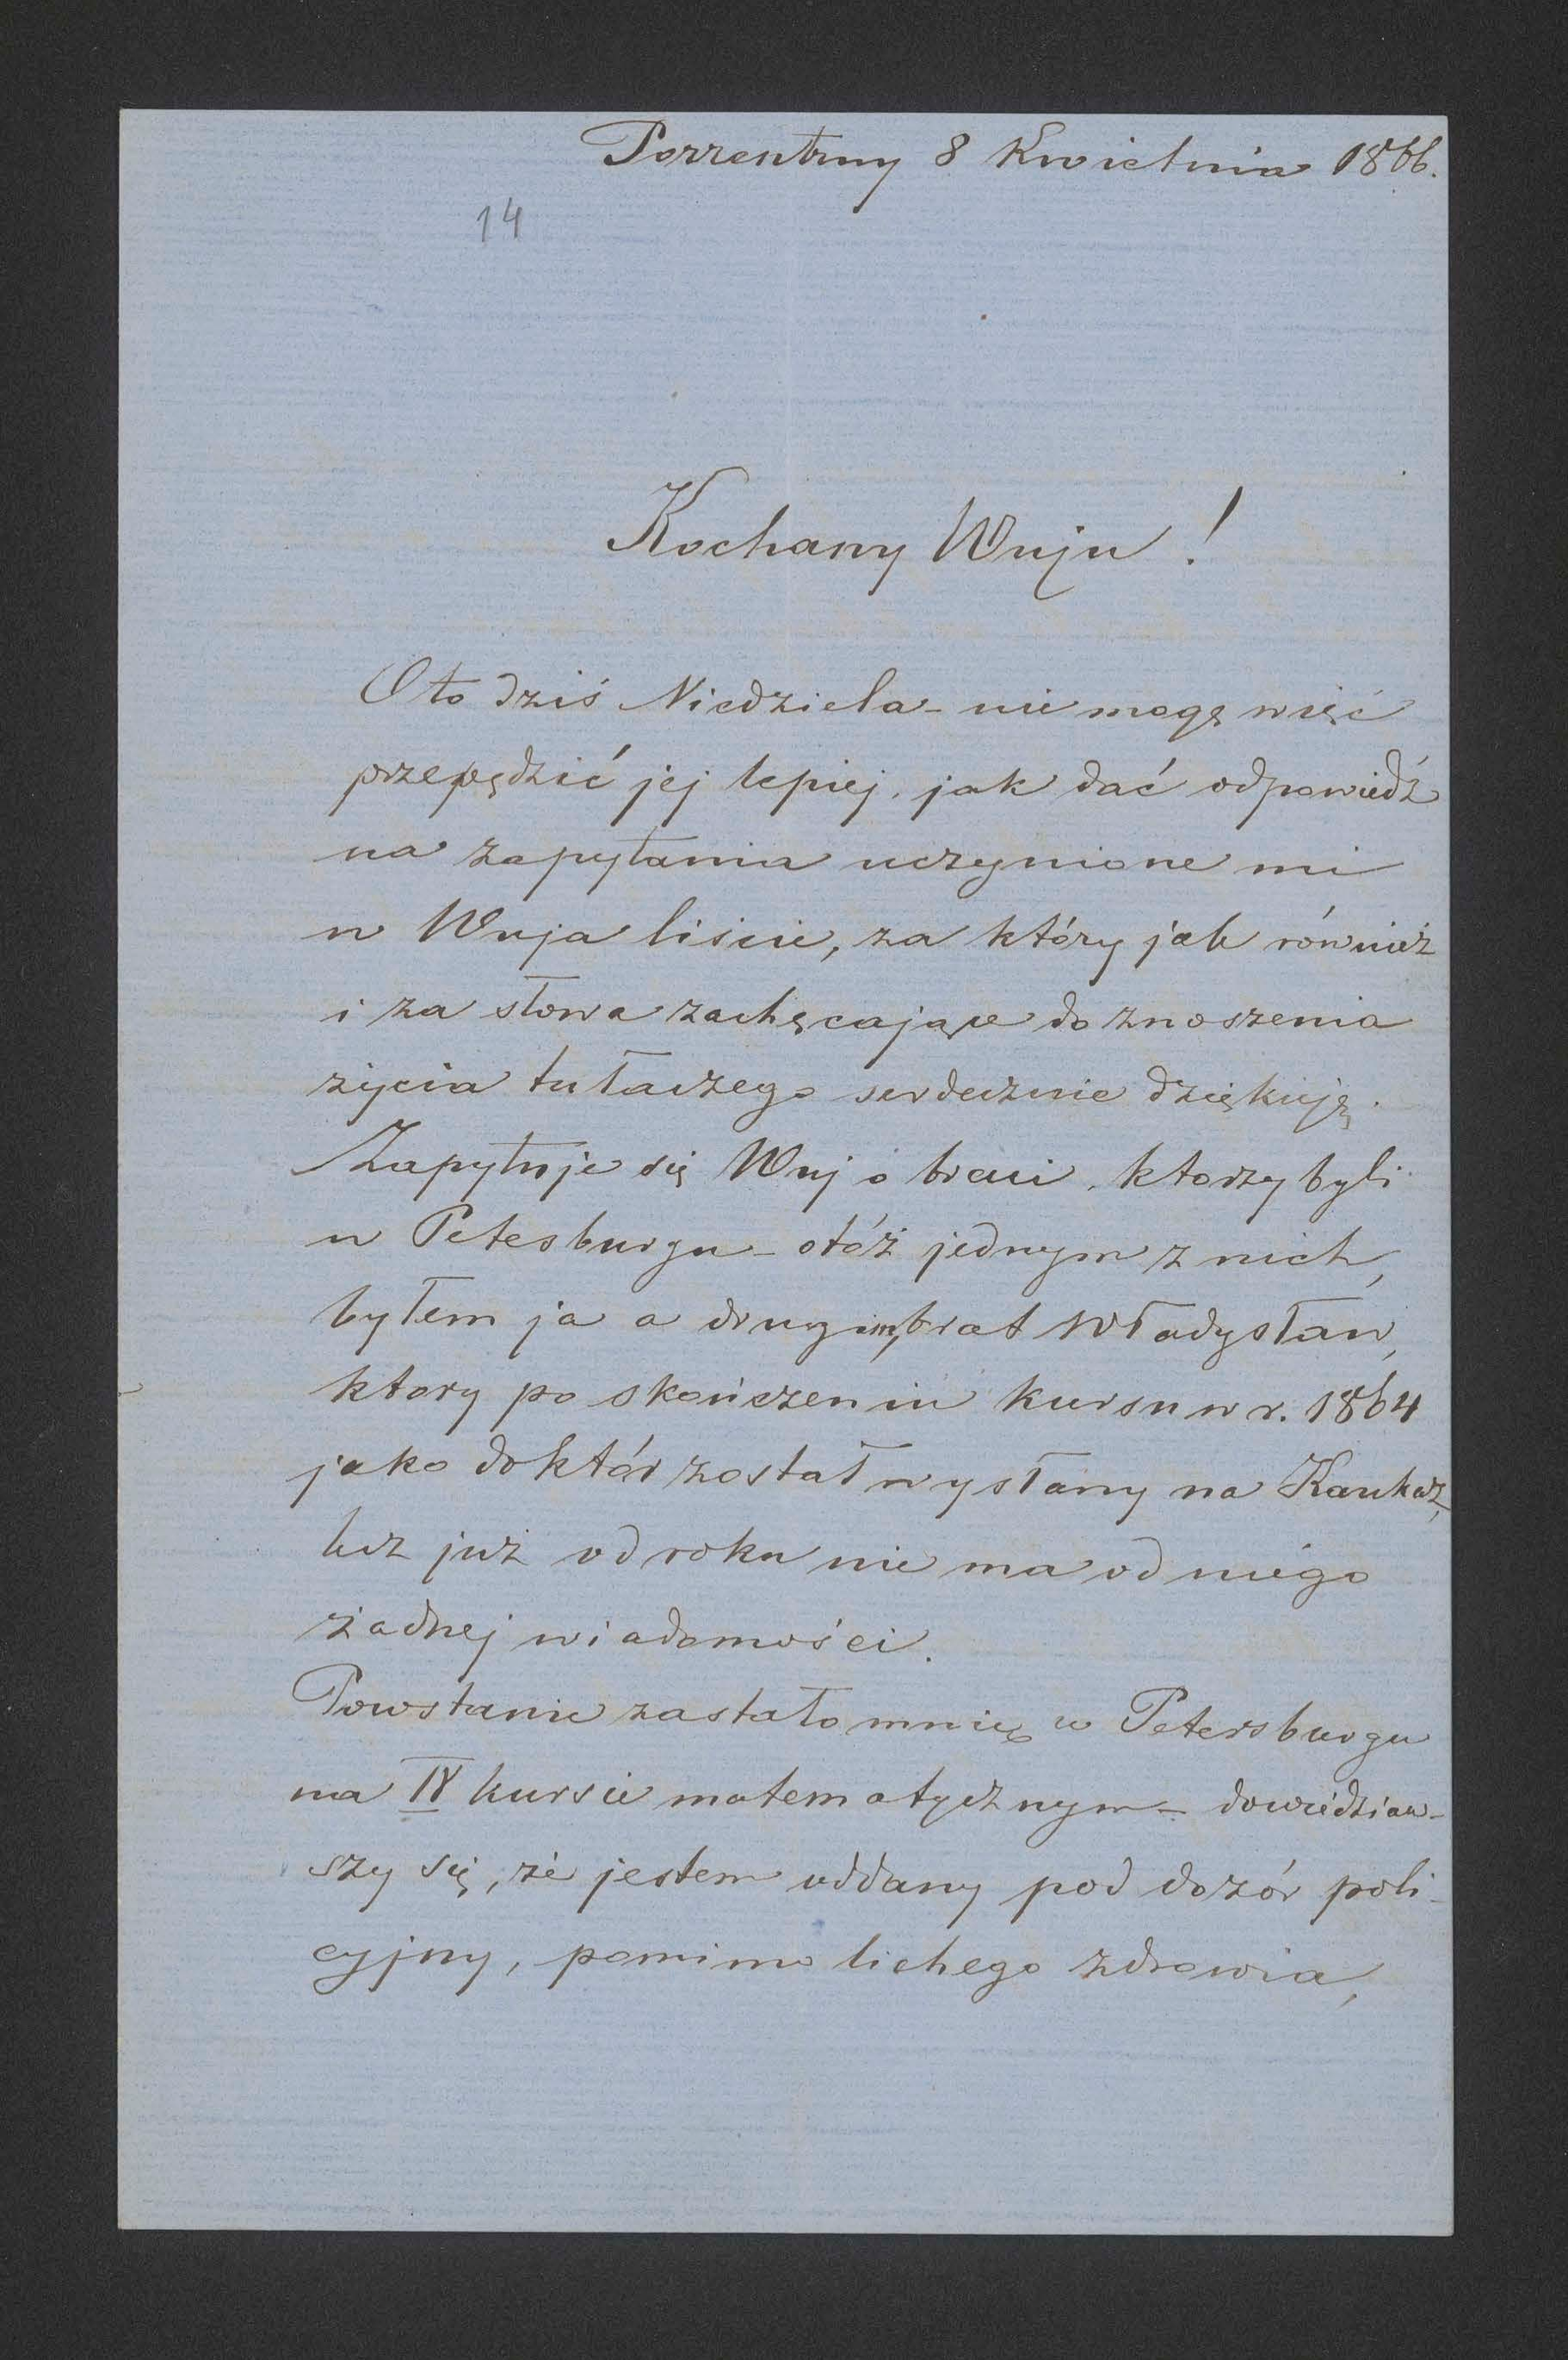 Porrentruy 8 Kwietnia 1866.
14
Kochany Wuju!
Oto dziś Niedziela - nie mogę więć
przepędzić jej lepiej, jak dać odpowiedź
na zapytania uczynione mi
w Wuja liście, za który jak również
i za słowa zachęcające do znoszenia
życia tułaczego serdecznie dziękuję.
Zapytuje się Wuj o braci, ktorzy byli
w Petesburgu - otóż jednym z nich,
byłem ja a drugim, brat Władysław,
ktory po skończeniu kursu w r. 1864
jako doktór został wysłany na Kaukaz,
lecz już od roku nie ma od niego
żadnej wiadomości.
Powstanie zastało mnie w Petersburgu
na IV kursie matematycznym - dowiedziaw-
szy się, że jestem oddany pod dozór poli-
cyjny, pomimo lichego zdrowia,